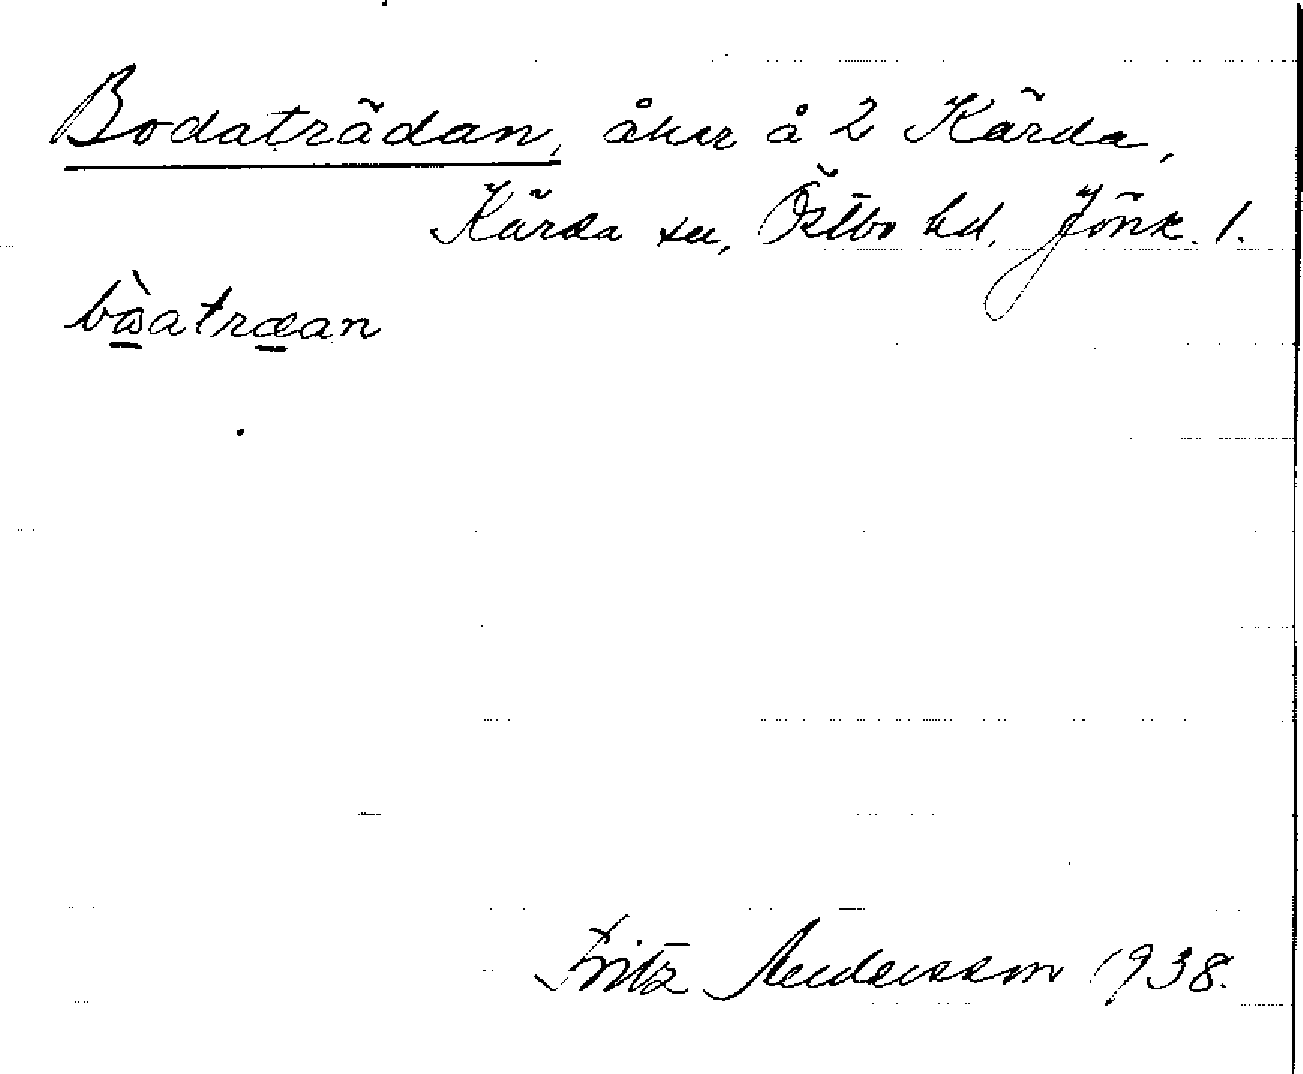 Bodaträdan, åker å 2 Kärda,
Kärda sn, Östbo hd. Jönk. l.
bòatræan
Fritz Andersson 1938.